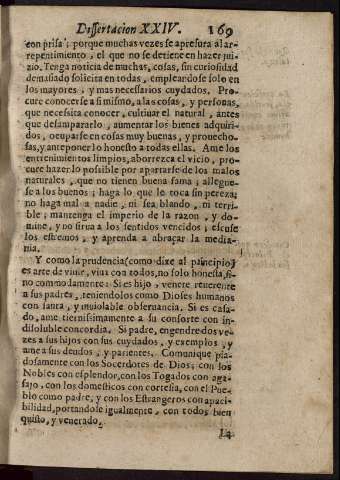 Dissertacion XXIV. 169
con prisa; porque muchas vezes se apresura al ar-
repentimiento, el que no se detiene en hazer jui-
zio. Tenga noticia de muchas, cosas, sin curiosidad
demasiado solicita en todas, empleandose solo en
los mayores, y mas necessarios cuydados. Pro-
cure conocerse a si mismo, a las cosas, y personas,
que necesita conocer, cultivar el natural, antes
que desampararlo, aumentar los bienes adquiri-
dos, ocuparse en cosas muy buenas, y provecho-
sas, y anteponer lo honesto a todas ellas. Ame los
entrenimientos limpios, aborrezca el vicio, pro-
cure hazer lo possible por apartarse de los malos
naturales, que no tienen buena fama; allegue-
se a los buenos; haga lo que le toca sin pereza;
no haga mal a nadie, ni sea blando, ni terri-
ble; mantenga el imperio de la razon, y do-
mine, y no sirva a los sentidos vencidos; escuse
los estremos, y aprenda a abraçar la media-
nia.
Y como la prudencia (como dixe al principio)
es arte de vivir, viva con todos, no solo honesta, si-
no commodamente: Si es hijo, venere reverente
a sus padres, teniendolos como Dioses humanos
con santa, y inviolable observancia. Si es casa-
do, ame tiernissimamente a su consorte con in-
disoluble concordia. Si padre, engendre dos ve-
zes a sus hijos con sus cuydados, y exemplos, y
ame a sus deudos, y parientes. Comunique pia-
dosamente con los Socerdotes de Dios; con los
Nobles con esplendor, con los Togados con aga-
sajo, con los domesticos con cortesia, con el Pue-
blo como padre, y con los Estrangeros con apaci-
bilidad, portandose igualmente, con todos bien
quisto, y venerado.